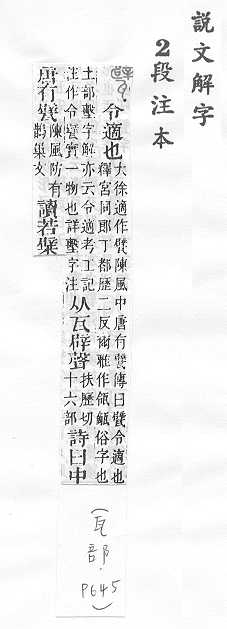 說文解字
2段注本
令適也
大徐適作甓陳風中唐有甓傳曰甓令適也
釋宮同郎丁都歷二反爾雅作瓴甋俗字也
土部墼字解亦云令適考工記
注作令甓實一物也詳墼字注
从瓦辟聲
扶歷切
十六部
詩曰中
唐有甓
陳風防有
鵲巢文
讀若檗
(瓦部. P645)